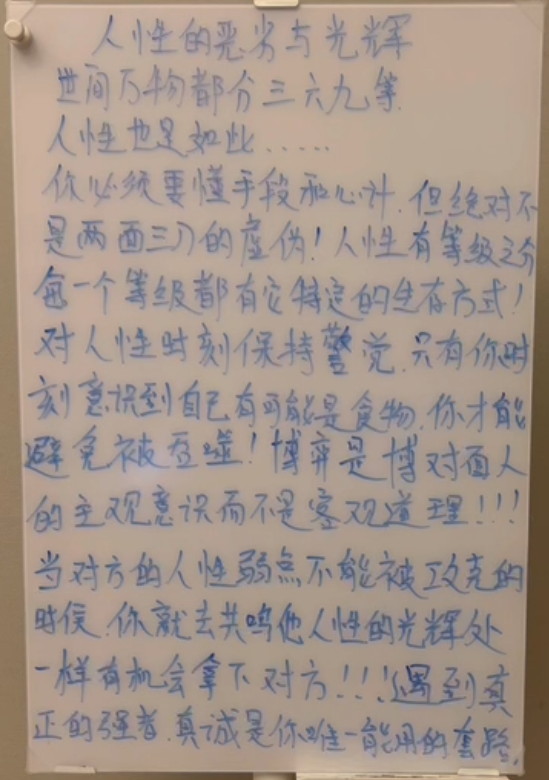 人性的恶劣与光辉
世间万物都分三六九等
人性也是如此……
你必须要懂手段和心计.但绝对不
是两面三刀的虚伪!人性有等级之分
每一个等级都有它特定的生存方式!
对人性时刻保持警觉.只有你时
刻意识到自己有可能是食物.你才能
避免被吞噬!博弈是博对面人
的主观意识而不是客观道理!!!
当对方的人性弱点不能被攻克的
时侯.你就去共鸣他人性的光辉处
一样有机会拿下对方!!!遇到真
正的强者.真诚是你唯一能用的套路.